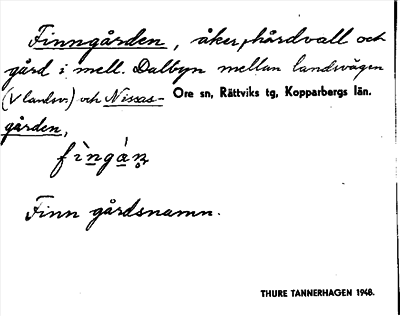 Finngården, åker, hårdvall och
gård i mell. Dalbyn mellan landsvägen
(V landsv.) och Nissas-
Ore sn, Rättviks tg, Kopparbergs län.
gården,
fìngán̥
Finn gårdsnamn.
THURE TANNERHAGEN 1948.